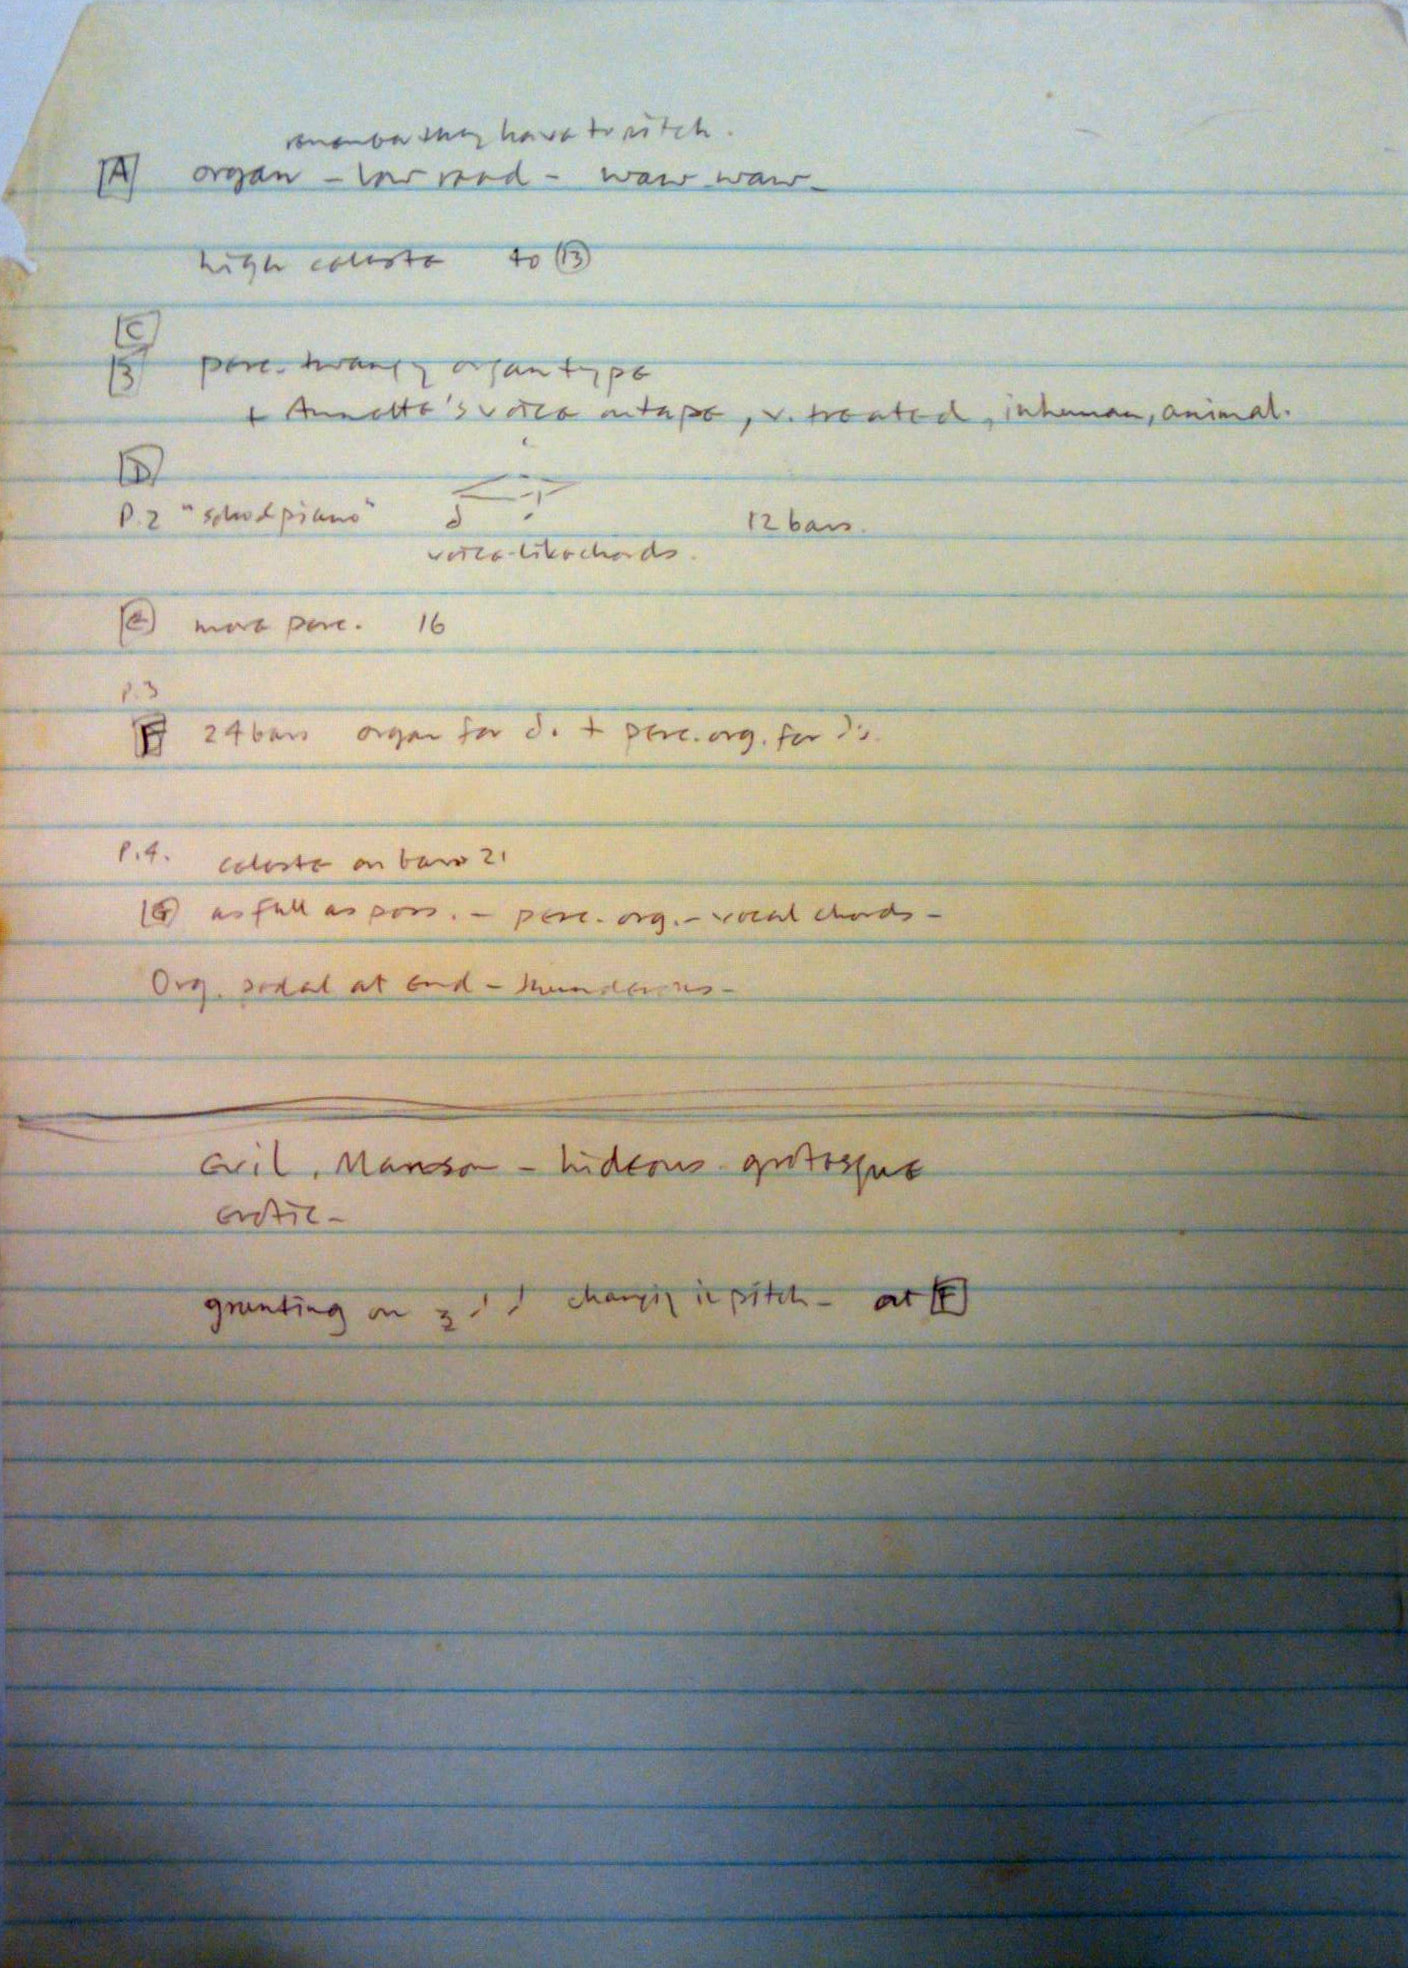 remember they have to pitch.
[A] organ - low reed - waw-waw-
high celesta to 13
[C]
[B] perc. twangy organ type
+ Annette's voice on tape, v. treated, inhuman, animal.
[D]
P.2 "school piano" 12 bars.
voice-like chords.
[E] more perc. 16
P.3
[F] 24 bars organ for 𝅗𝅥. + perc. org. for
P.4. celesta on bar 21
[G] as full as poss. - perc. org. - vocal chords -
Org. pedal at end - thunderous -
evil, Manson - hideous grotesque
erotic -
grunting on changing in pitch - at [F]